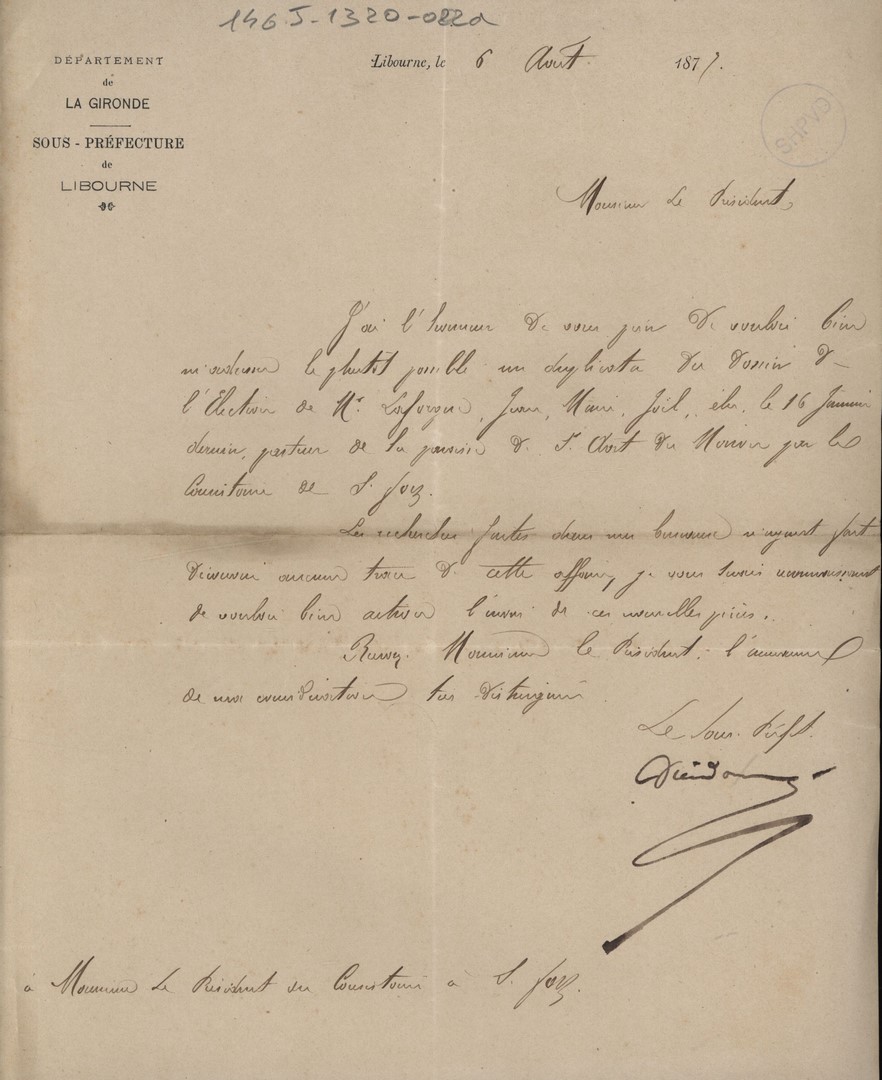 146 J-1320-022a
DÉPARTEMENT
de
LA GIRONDE
SOUS - PRÉFECTURE
de
LIBOURNE
Libourne, le 6 Avril 1877.
SHPVD
Monsieur Le Président,
J'ai l'honneur de vous prier de vouloir bien
m'adresser le plutôt possible un duplicata du Dossier de
l'Élection de Mr. Lafargue, Jean, Marie, Joël, élu, le 16 Janvier
dernier, pasteur de la paroisse de St. Avit du Moiron par le
Consistoire de Ste foy.
Les recherches faites dans mes bureaux n'ayant fait
découvrir aucune trace de cette affaire, je vous serais reconnaissant
de vouloir bien activer l'envoi de ces nouvelles pièces.
Recevez, Monsieur le Président, l'assurance
de ma considération très distinguée
Le Sous-Préfet.
à Monsieur Le Président du Consistoire à Ste foy.